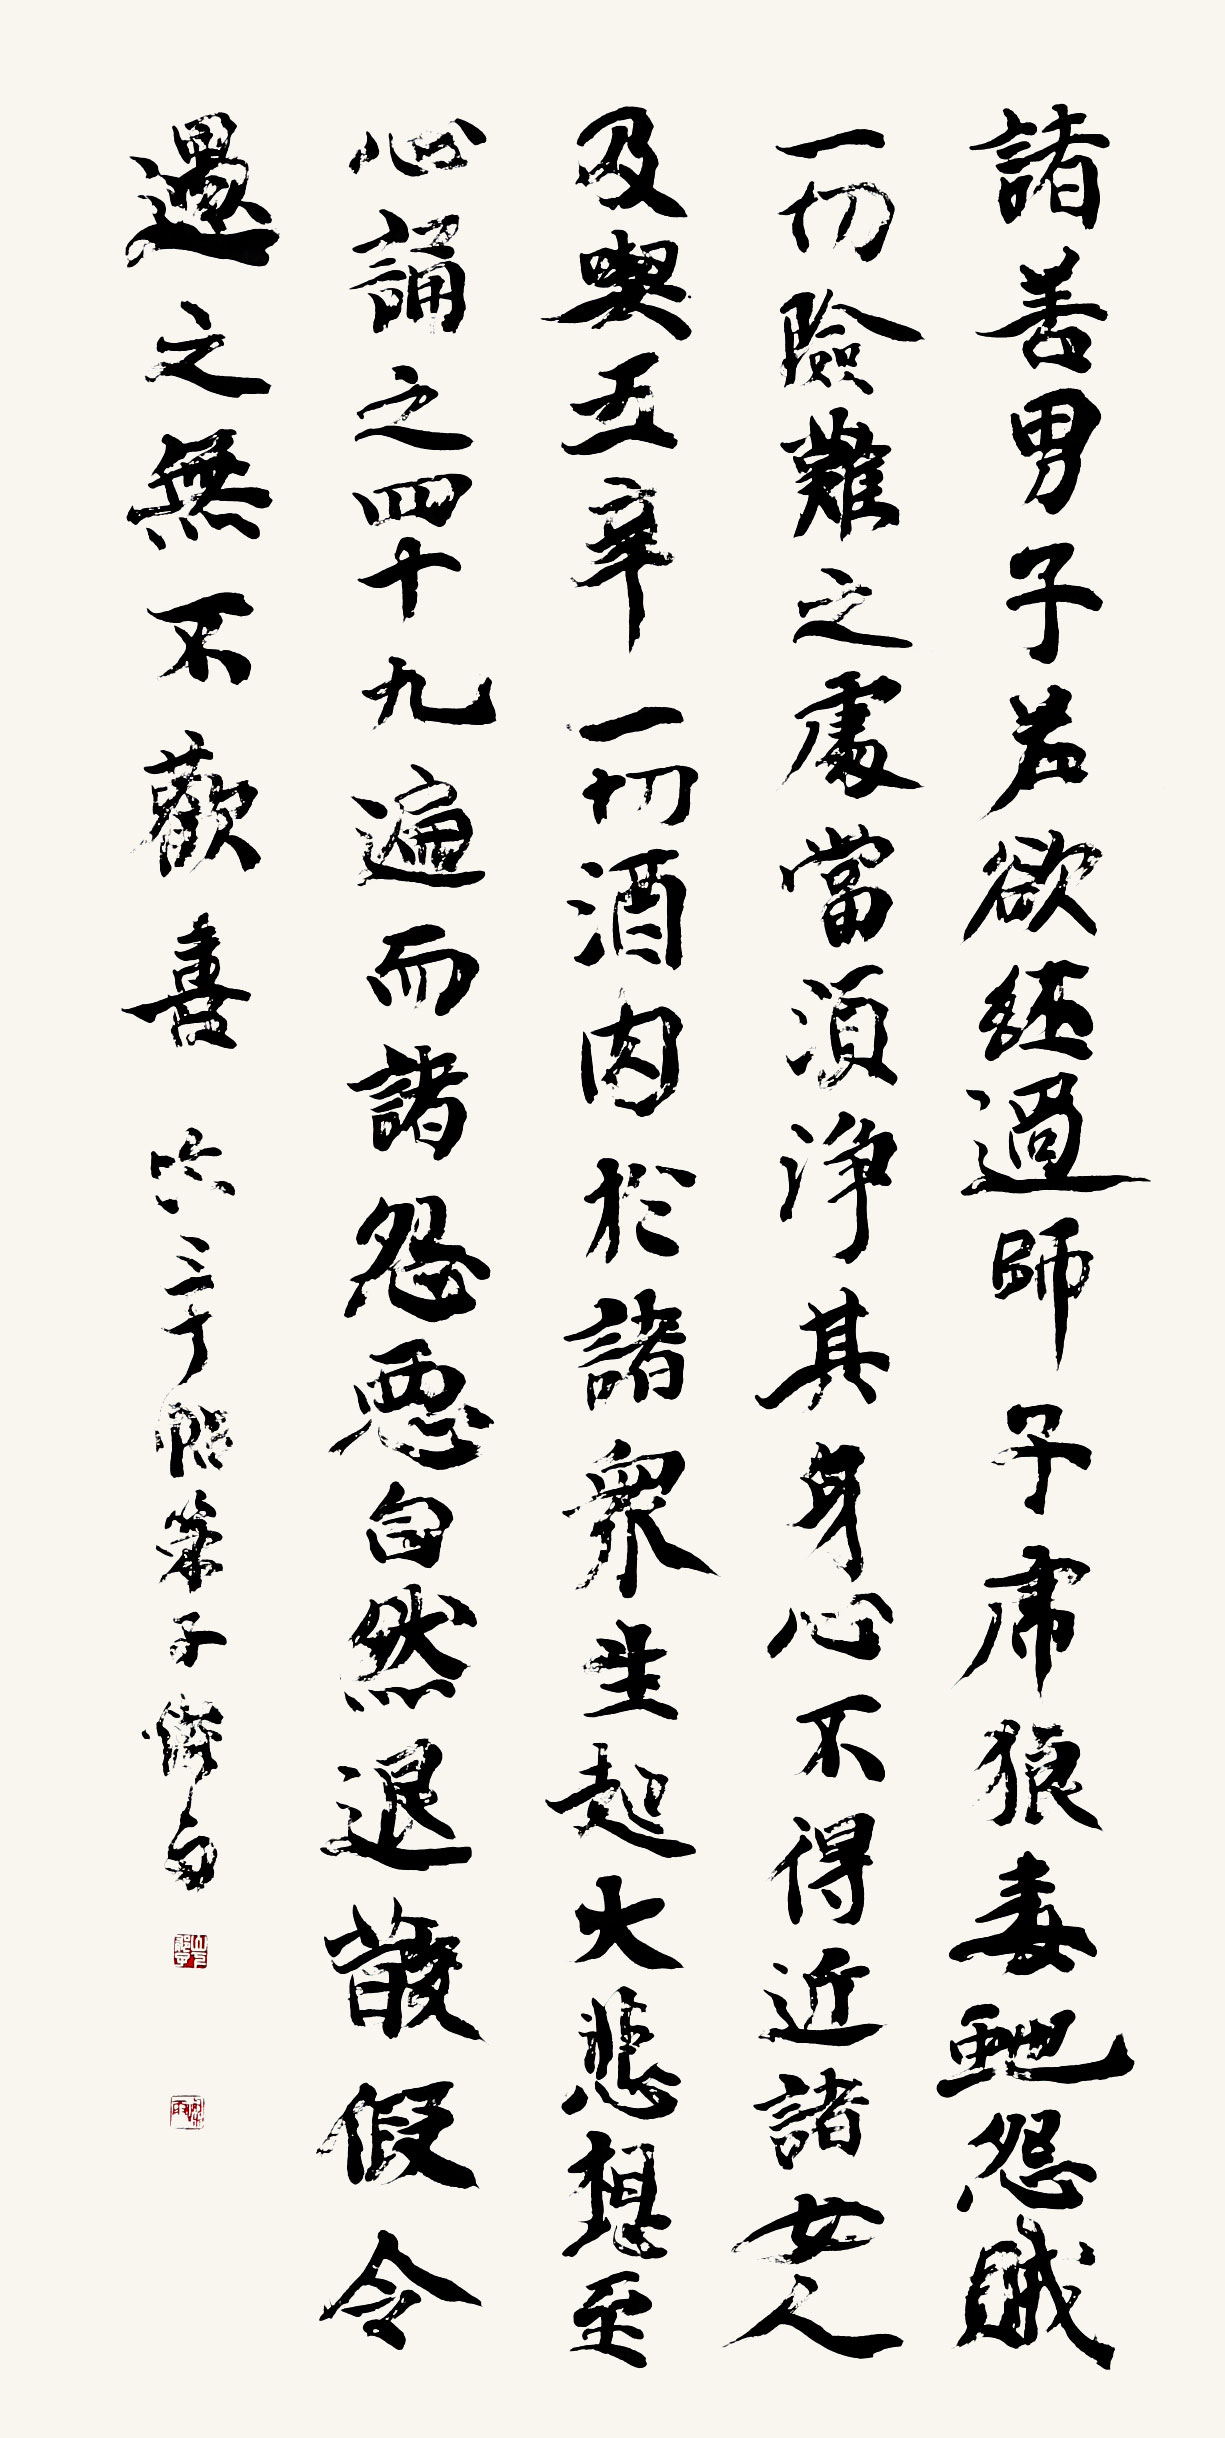 諸善男子若欲經過師子虎狼毒虵怨賊
一切險難之處當須淨其身心不得近諸女人
及喫五辛一切酒肉於諸衆生起大悲想至
心誦之四十九遍而諸怨惡自然退散假令
遇之無不歡喜
弟子